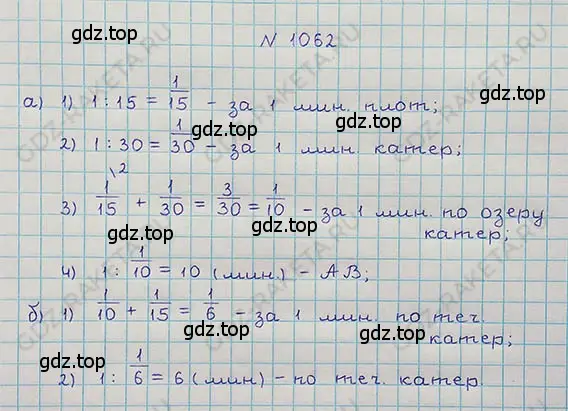 gdz.top
N 1062
а) 1) 1 : 15 = 1/15 - за 1 мин. плот;
gdz.top
2) 1 : 30 = 1/30 - за 1 мин. катер;
gdz.top
3) 1/15 \2 + 1/30 = 3/30 = 1/10 - за 1 мин. по озеру
катер;
gdz.top gdz.top
4) 1 : 1/10 = 10 (мин.) - AB;
б) 1) 1/10 + 1/15 = 1/6 - за 1 мин. по теч.
катер;
gdz.top gdz.top
2) 1 : 1/6 = 6 (мин) - по теч. катер.
gdz.top gdz.top
GDZ-RAKETA.RU